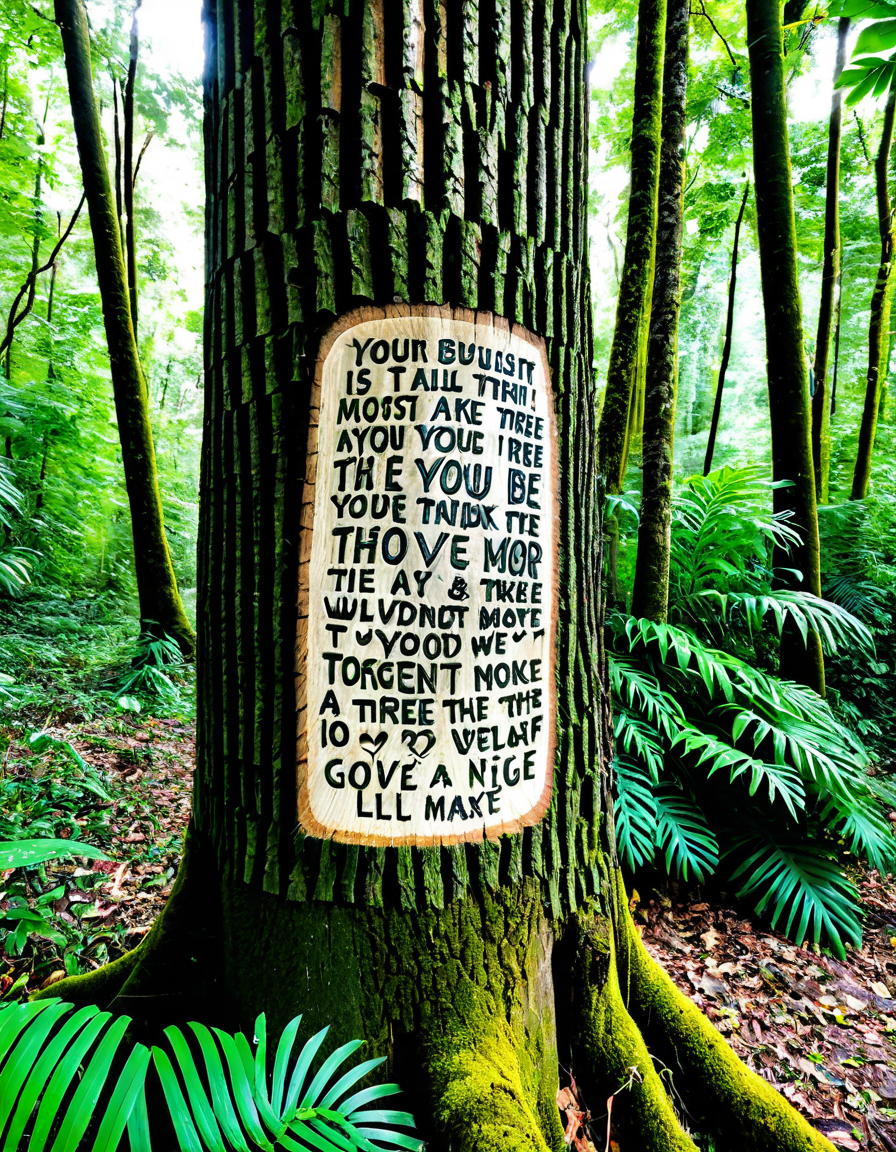 YOUR BUUSIT
IS TAIL TTRI!
MOSST AKE TREE
AYOU YOUE IREE
THE YOU BE
YOUE TNIDK TTE
THOVE MOR
TIE AY & TKEE
WLLVDNOT MOTE
T YOOD WE
TORGENT MOKE
A TIREE THE THE
IO VELAIF
GOVE A NIGE
LLL MAKE